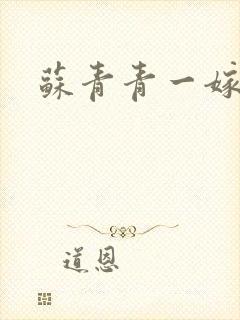 蘇青青一嫁
道恩